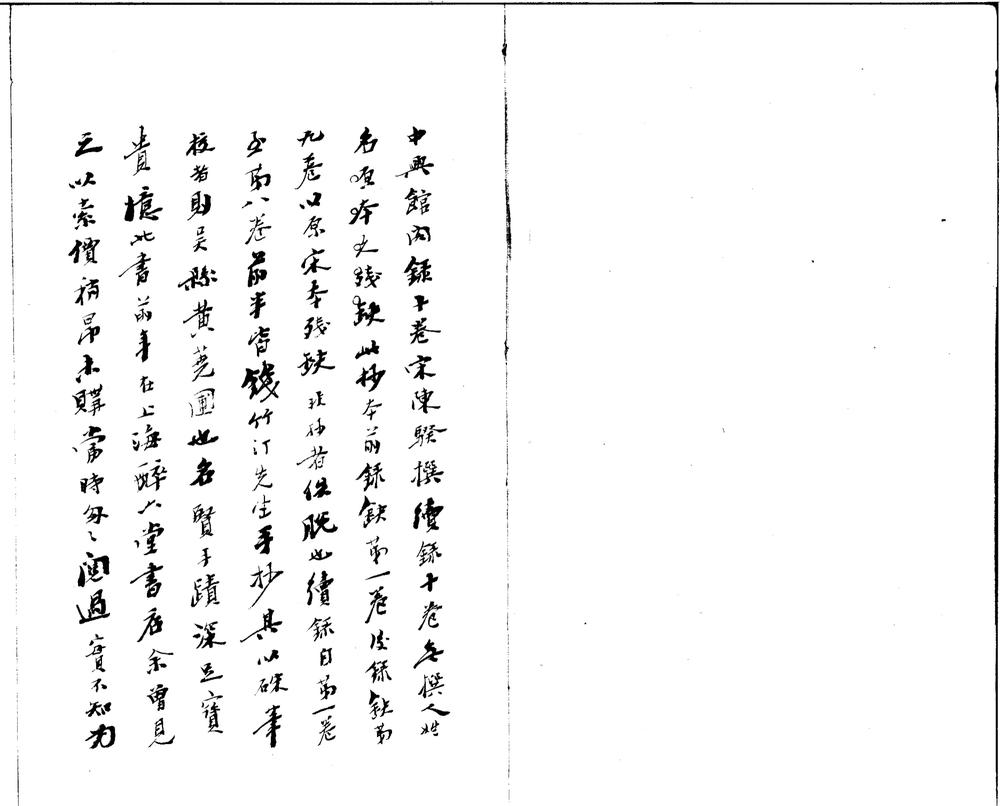 中興館閣録十卷宋陳騤撰續録十卷無撰人姓
名原本久殘缺此抄本前録缺第一卷後録缺第
九卷以原宋本殘缺非抄者佚脱也續録自第一卷
至第八卷前半皆錢竹汀先生手抄其以硃筆
校者則吴縣黄蕘圃也名賢手蹟深足寶
貴憶此書前年在上海醉六堂書店余曾見
之以索價稍昂未購當時匆〻閲過實不知為